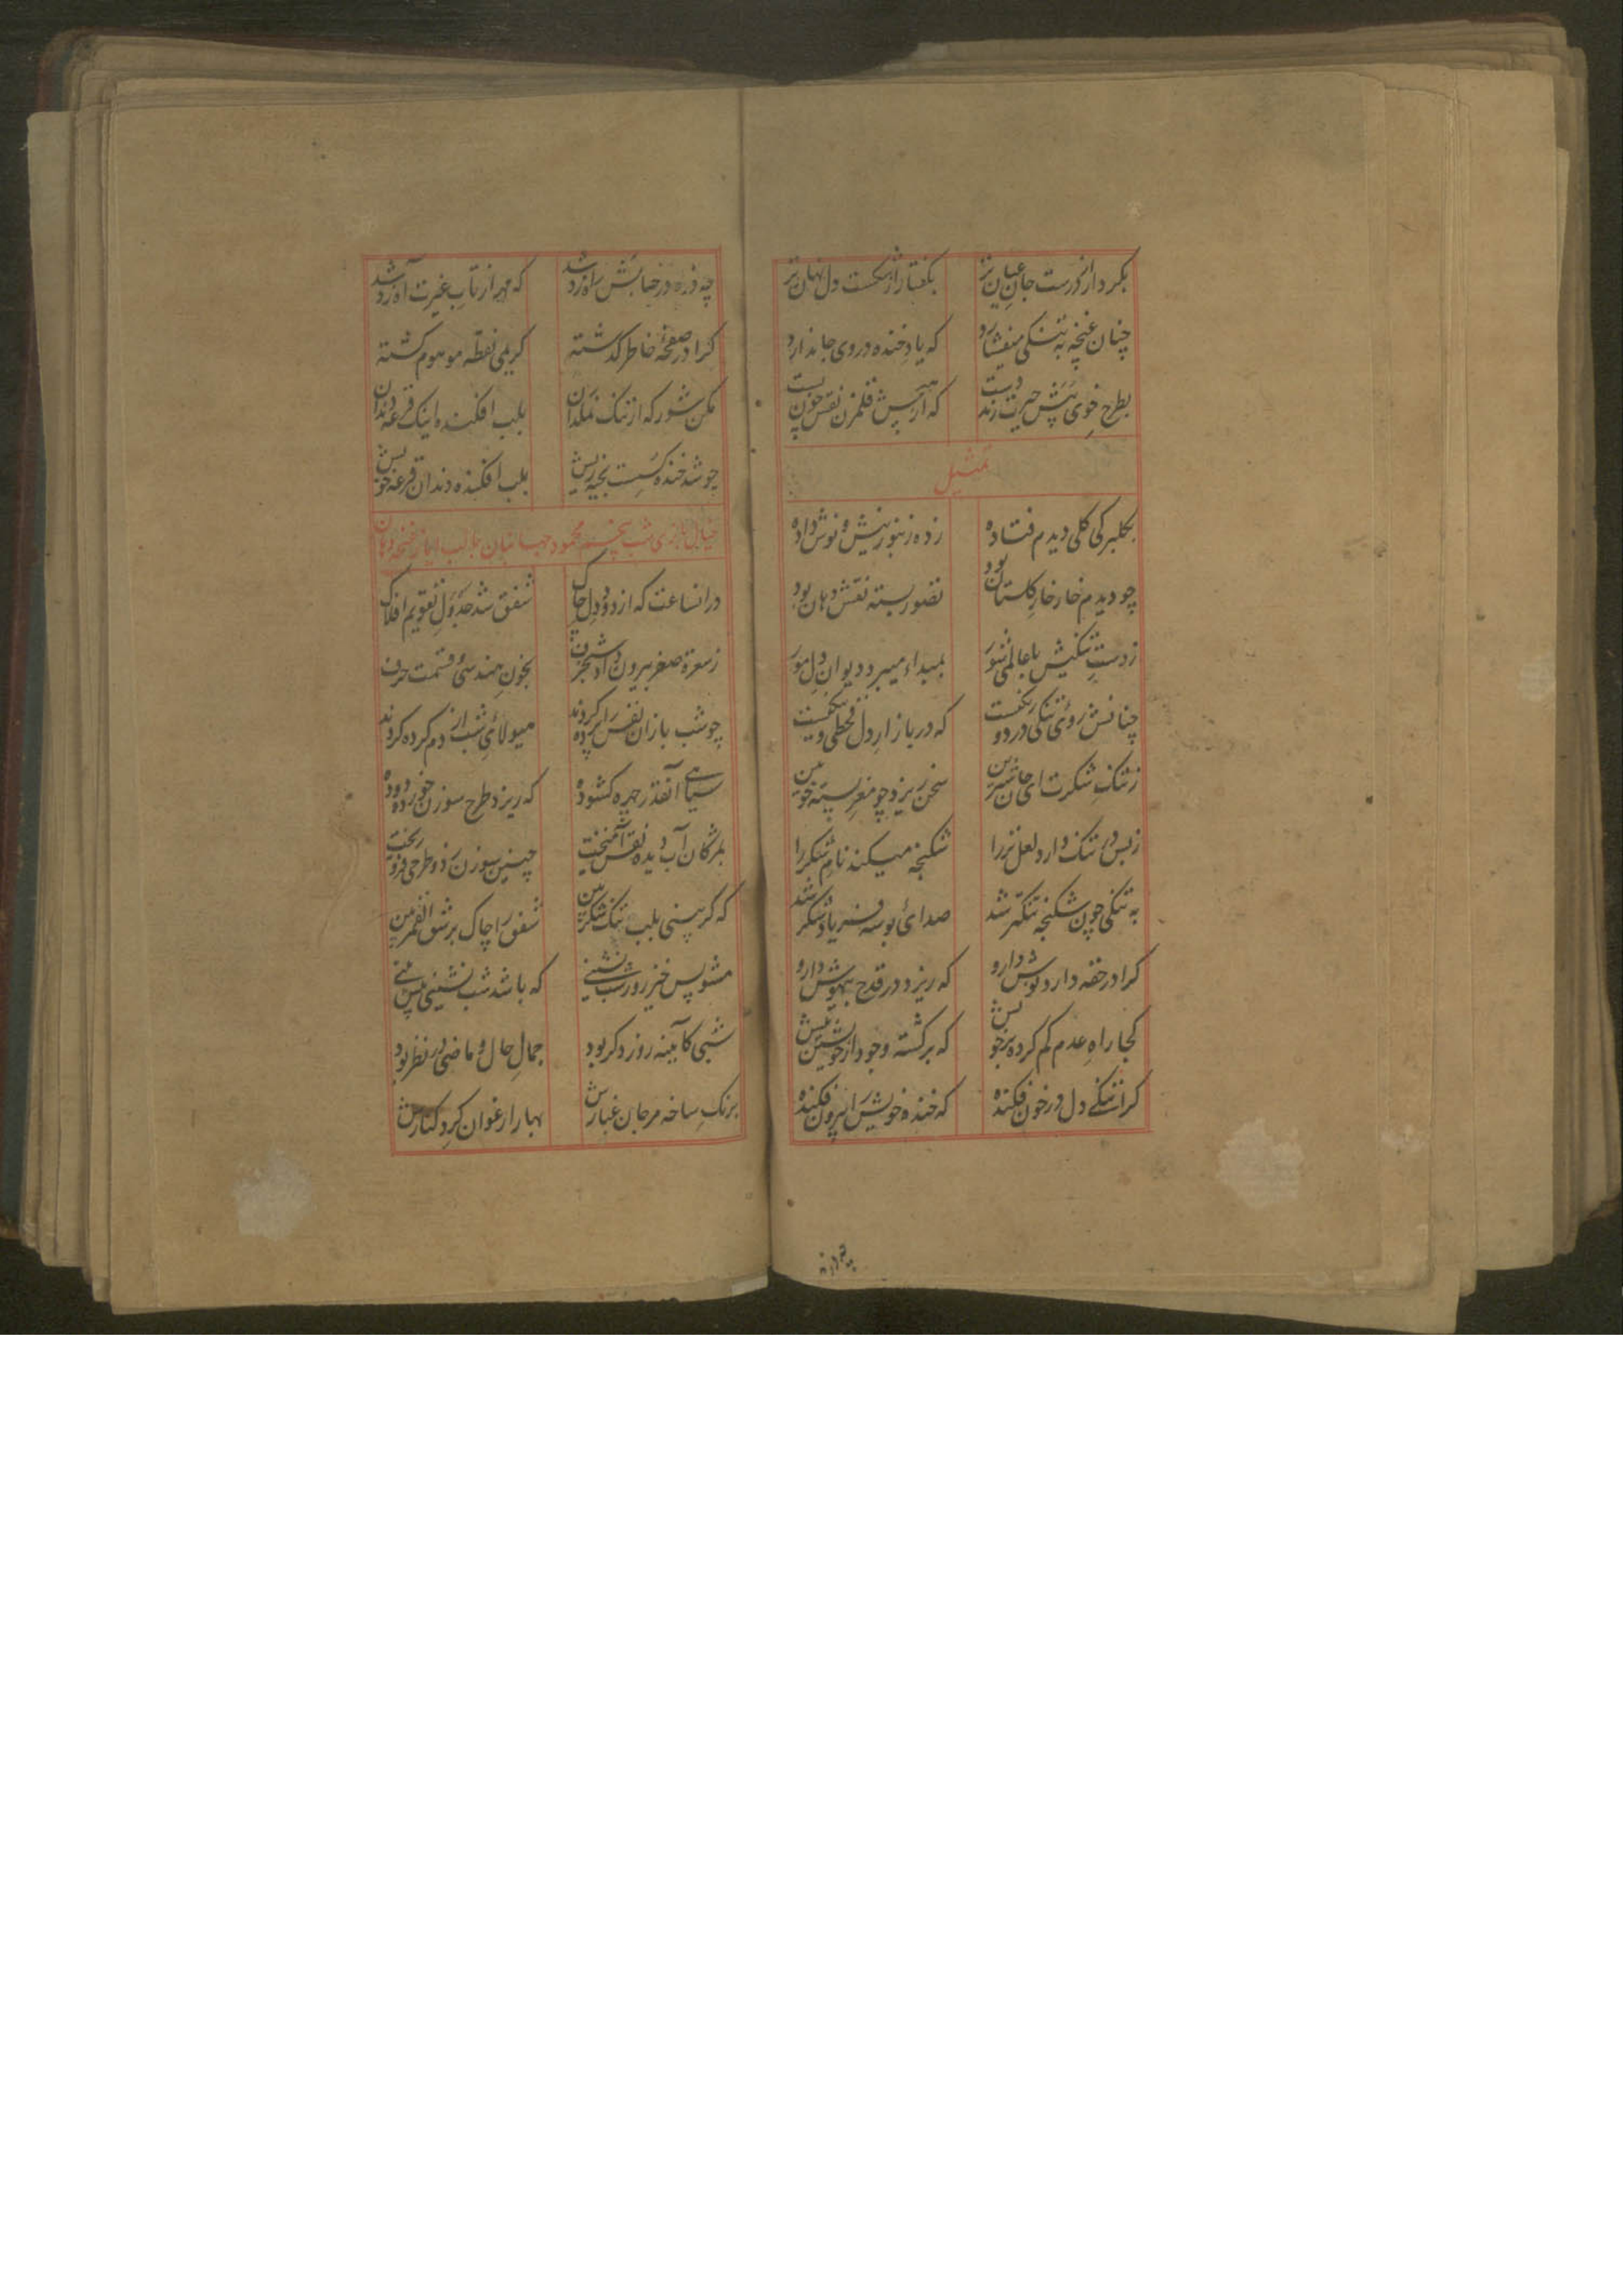 بکردار از درست جان عیان تر
بگفتار از شکست دل نهان تر
چنان غنچه به تنکی میفشارد
که یاد خنده در وی جا ندارد
بطرح خوی حیرت زند دست
که از قلمزن نقش خون بست
تمثیل
بکلبرکی کلی دیدم فتاده
زده زنبور نیش و نوش داده
چو دیدم خار خار کلستان بود
تصور بسته نقش دهان بود
ز دست تنکیش با عالمی شور
بمبداء میبرد دیوان دل مور
چنانش روئی تنکی در دو رنکفت
که در بازار دل قحطی
ز تنک شکرت ای جان شیرین
سخن ریزد چو مغز پسته خونین
زبس در تنک دارد لعل تر را
شکنجه میکند نام شکر را
به تنکی چون شکنجه تنکتر شد
صدائ بوسه فریاد شکر شد
کرا در حقه دارد نوش دارو
که ریزد در قدح بیهوش دارو
کجا راه عدم کم کرده بر خویش
که برکشته وجود از خویشتن بیش
کرا تنکی دل در خون فکنده
که خنده خویش را بیرون فکنده
چه ذره در حسابش راه زد شد
که مهر از تاب غیرت آه زد شد
کرا در صفحهٔ خاطر کذشته
کریمی نقطه موهوم کشته
مکن شور که از تنک نمکدان
بلب افکنده اینک قرعه دندان
چو شد خنده کسست بخیه ریش
بلب افکنده دندان قرعهٔ خویش
خیال شب بچشم محمود لب ایاز غنچه دهان
در انساعت که از دود دل خاک
شفق شد جدول تقویم افلاک
ز سعره صغر بیرون داد شنجرف
بخون هندسئ قسمت حرف
چو شب بازان نفس را پرده کردند
میولائ شب از دم کرده کردند
سیاهی آنقدر چهره کشوده
که ریزد طرح سوزن خورده دوده
بمژکان آب دیده نقش آمیخت
چنین سوزن زد و طرحی فرو ریخت
که کر بینی بلب تنک شکر بین
شفق را چاک بر شق القمر بین
مشو پس خیز روز شب نشینی
که باشد شب نشینی پیش بینی
شبی کائینه روز دکر بود
جمال حال و ماضی در نظر بود
برنک شاخه مرجان غبارش
بهار ارغوان کرد کنارش